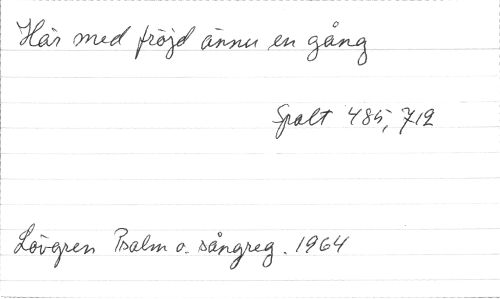 Här med fröjd ännu en gång
Spalt 485, 712
Lövgren Psalm o. sångreg. 1964